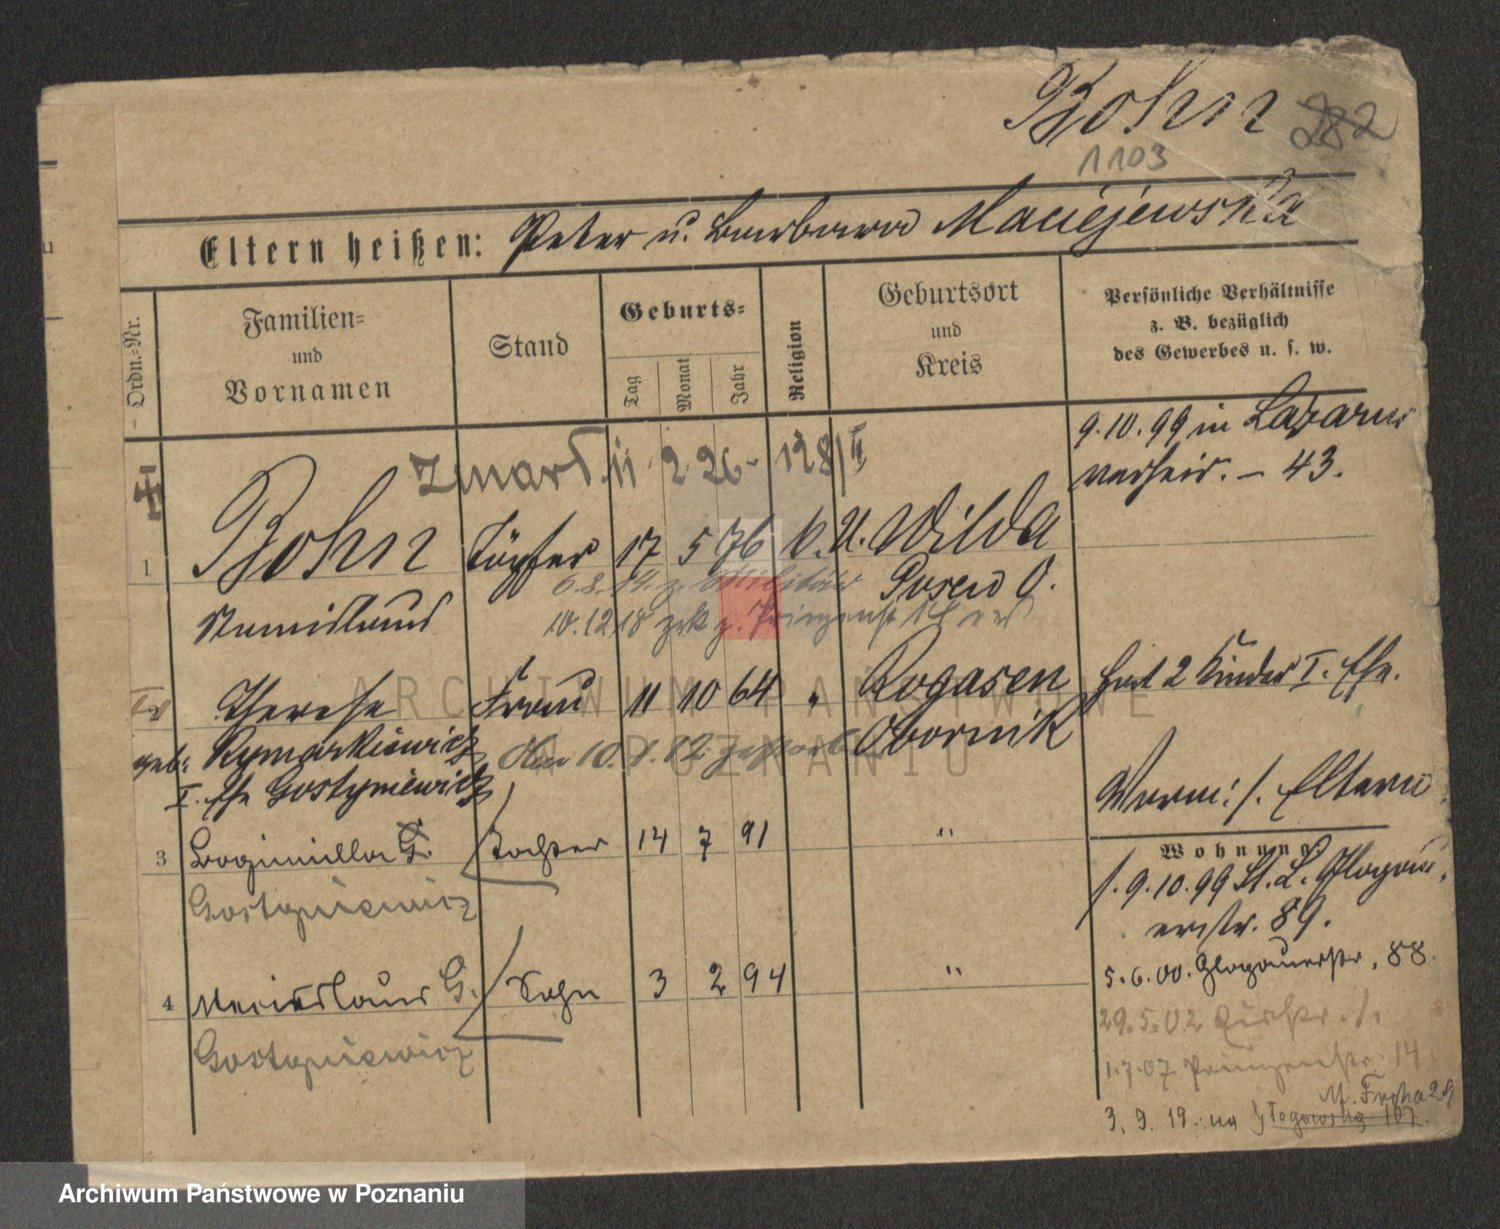 Bohn 282
1103
Eltern heißen: Peter u. Barbara Maciejewska
Ordn.-Nr.
Familien-
und
Vornamen
Stand
Geburts-
Tag
Monat
Jahr
Religion
Geburtsort
und
Kreis
Persönliche Verhältnisse
z. B. bezüglich
des Gewerbes u. s. w.
9.10.99 in Lazarus
verheir. – 43.
Zmarł 11 2 26 - 128/II
1 Bohn Töpfer 17 5 76 k. U. Wilda
Posen O.
6.8.14. z. Militär
Stanislaus
10.12.18 zrk v. Prinzenstr. 14
Therese Frau 11 10 64 " Rogasen hat 2 Kinder I. Ehe.
geb. Rymarkiewicz Obornik
10.1.12.
I. Ehe Gostyniewicz
Worm: /. Eltern
3 Bogumilla G. Tochter 14 7 91 "
Gostyniewicz
Wohnung
/. 9.10.99 St. L. Glogau-
erstr. 89.
4 G. Sohn 3 2 94 "
5.6.00. Glogauerstr. 88.
Gostyniewicz
29.5.02
1.7.07 Prinzenstr. 14
M. Focha 29
3.9.19. na Głogowską 107.
ARCHIWUM PAŃSTWOWE
W POZNANIU
Archiwum Państwowe w Poznaniu